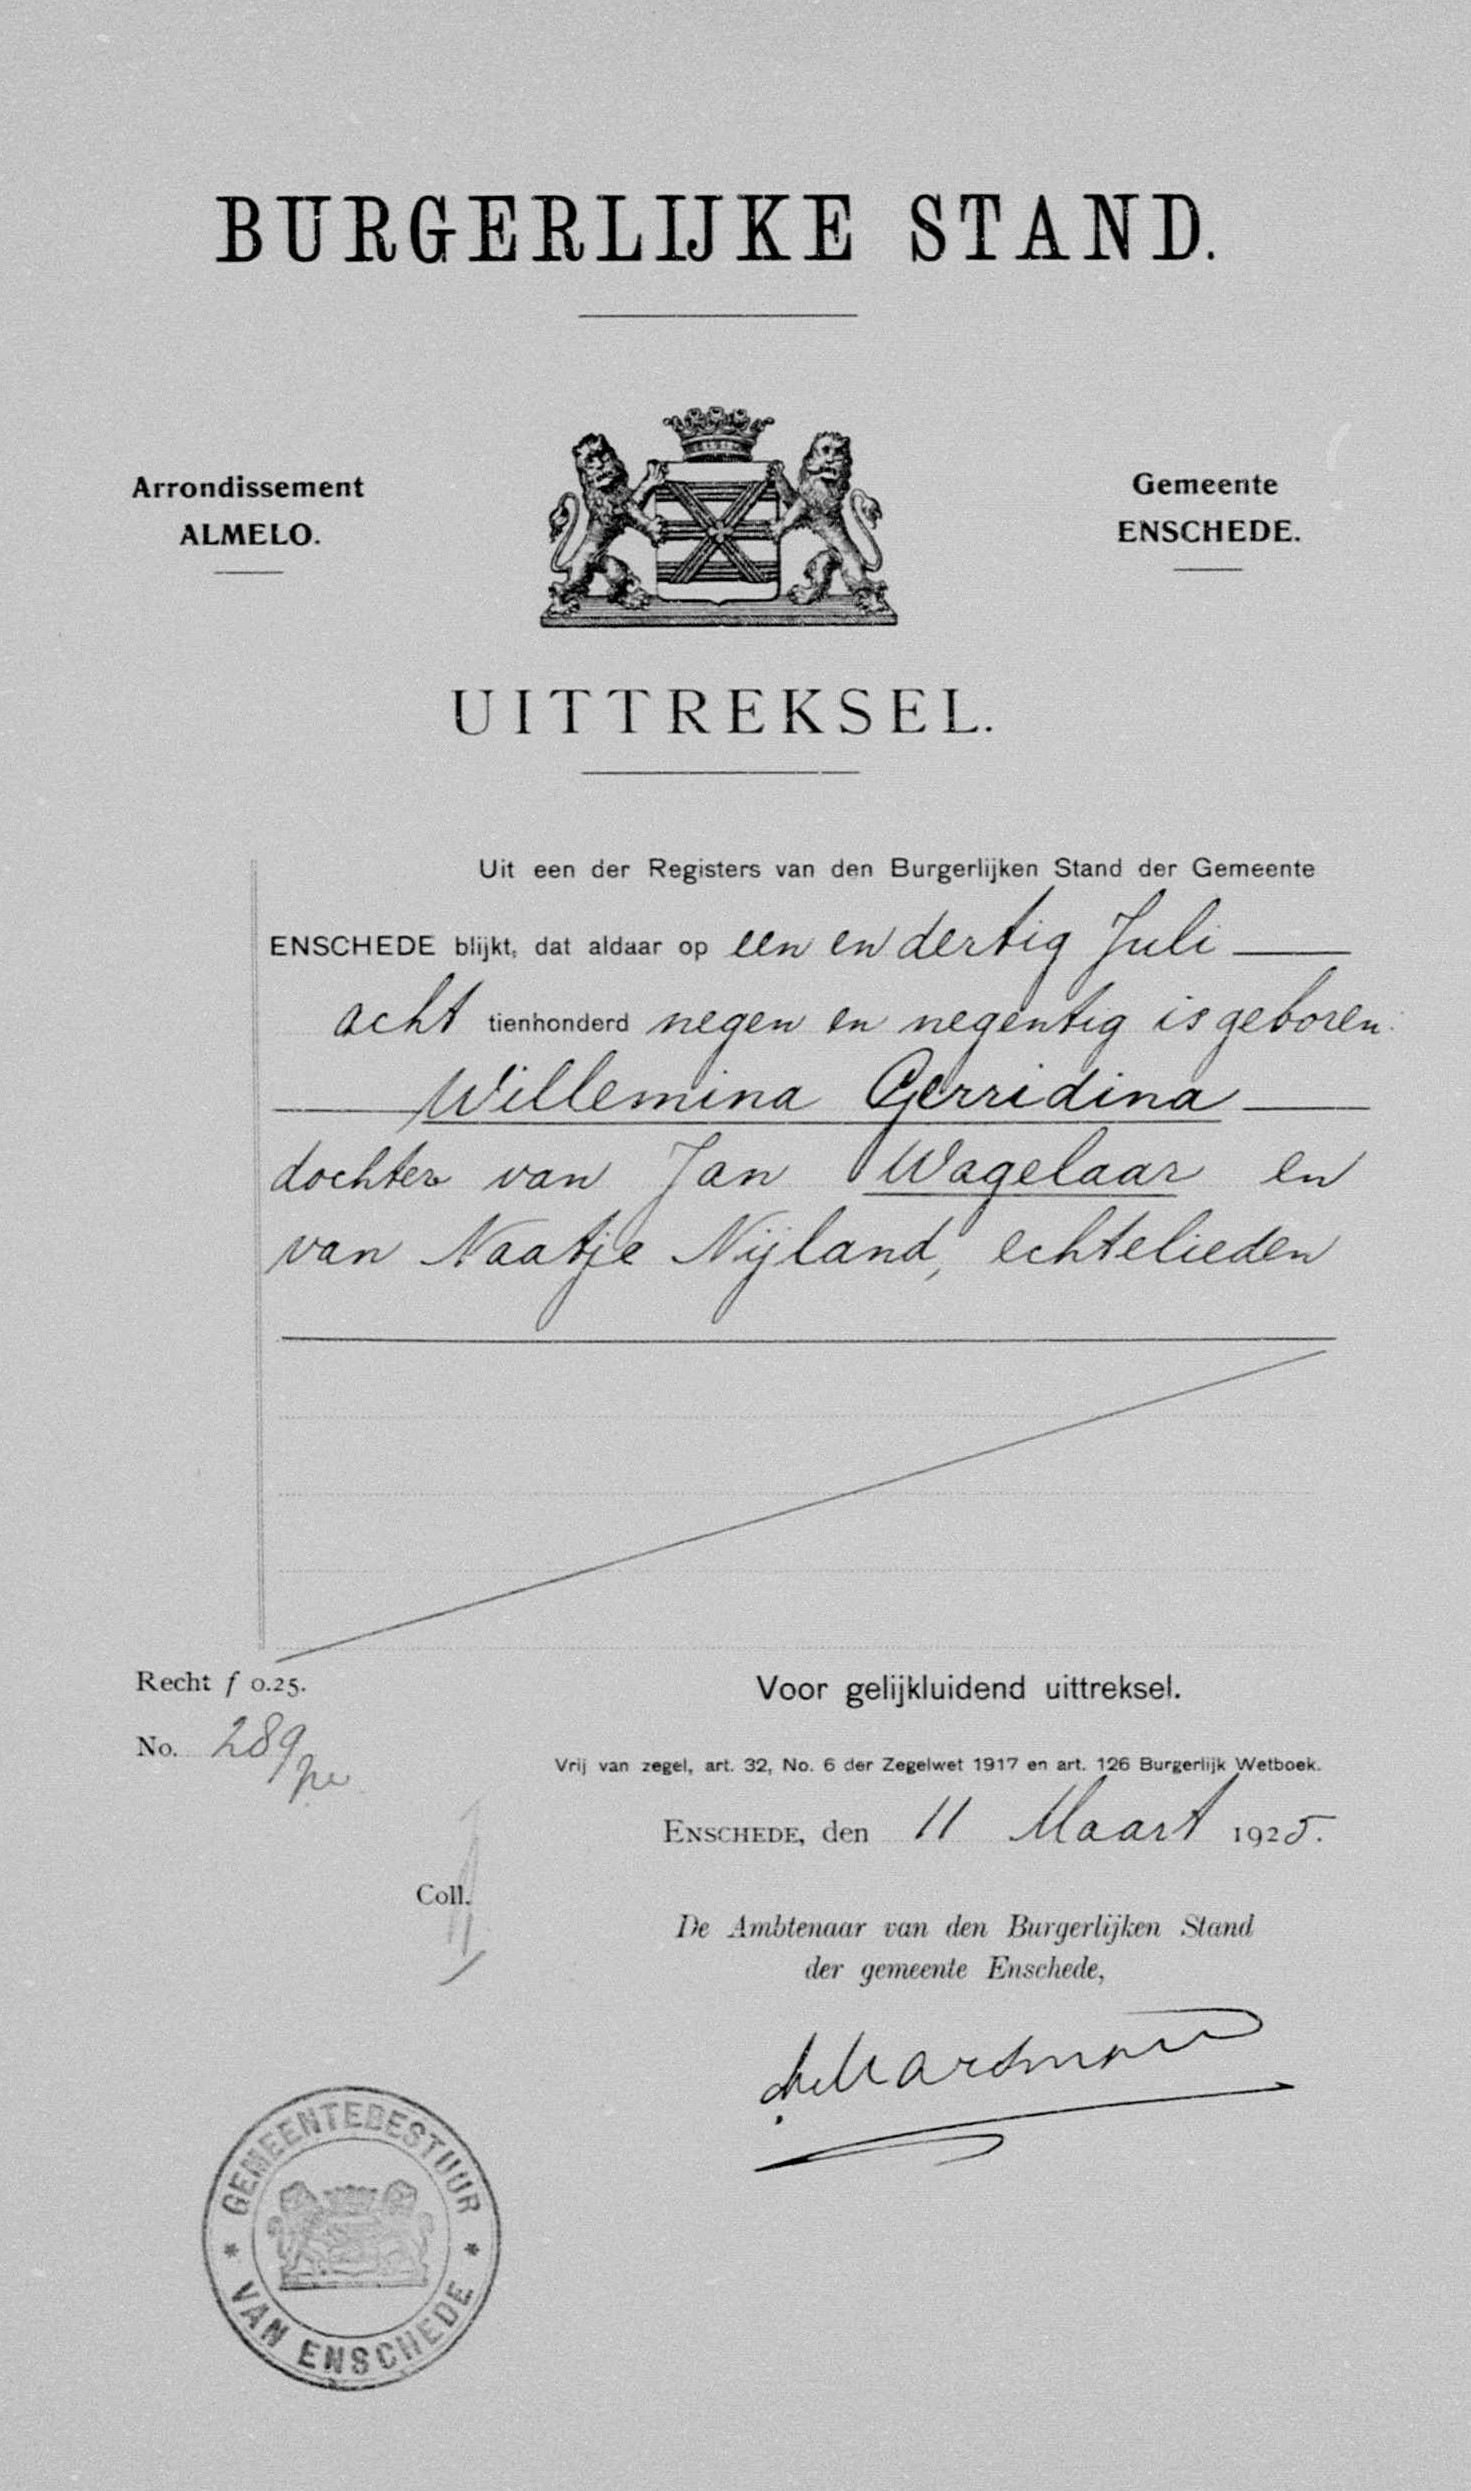 BURGERLIJKE STAND.
Arrondissement
ALMELO.
Gemeente
ENSCHEDE.
UITTREKSEL.
Uit een der Registers van den Burgerlijken Stand der Gemeente
ENSCHEDE blijkt, dat aldaar op een en dertig Juli
acht tienhonderd negen en negentig is geboren:
Willemina Gerridina
dochter van Jan Wagelaar en
van Naatje Nijland, echtelieden
Recht f 0.25.
No. 289
Voor gelijkluidend uittreksel.
Vrij van zegel, art. 32, No. 6 der Zegelwet 1917 en art. 126 Burgerlijk Wetboek.
ENSCHEDE, den 11 Maart 1925.
Coll.
De Ambtenaar van den Burgerlijken Stand
der gemeente Enschede,
GEMEENTEBESTUUR
* VAN ENSCHEDE *